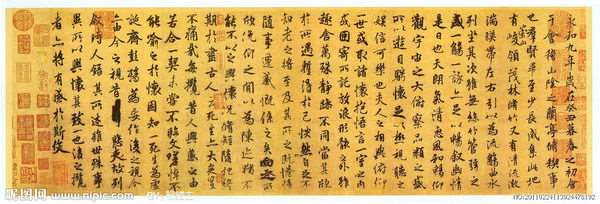 永和九年歲在癸丑暮春之初會
于會稽山陰之蘭亭脩稧事
也群賢畢至少長咸集此地
有崇山峻領茂林脩竹又有清流激
湍暎帶左右引以為流觴曲水
列坐其次雖無絲竹管弦之
盛一觴一詠亦足以暢敘幽情
是日也天朗氣清惠風和暢仰
觀宇宙之大俯察品類之盛
所以遊目騁懷足以極視聽之
娛信可樂也夫人之相與俯仰
一世或取諸懷抱悟言一室之內
或因寄所託放浪形骸之外雖
趣舍萬殊靜躁不同當其欣
於所遇蹔得於己怏然自足不
知老之將至及其所之既惓情
隨事遷感慨係之矣向之所
欣俛仰之閒以為陳迹猶不
能不以之興懷況脩短隨化終
期於盡古人云死生亦大矣豈
不痛哉每攬昔人興感之由
若合一契未嘗不臨文嗟悼不
能喻之於懷固知一死生為虛
誕齊彭殤為妄作後之視今
亦由今之視昔悲夫故列
敘時人錄其所述雖世殊事
異所以興懷其致一也後之攬
者亦將有感於斯文
昵图网 www.nipic.com
NO:20110224113924478192